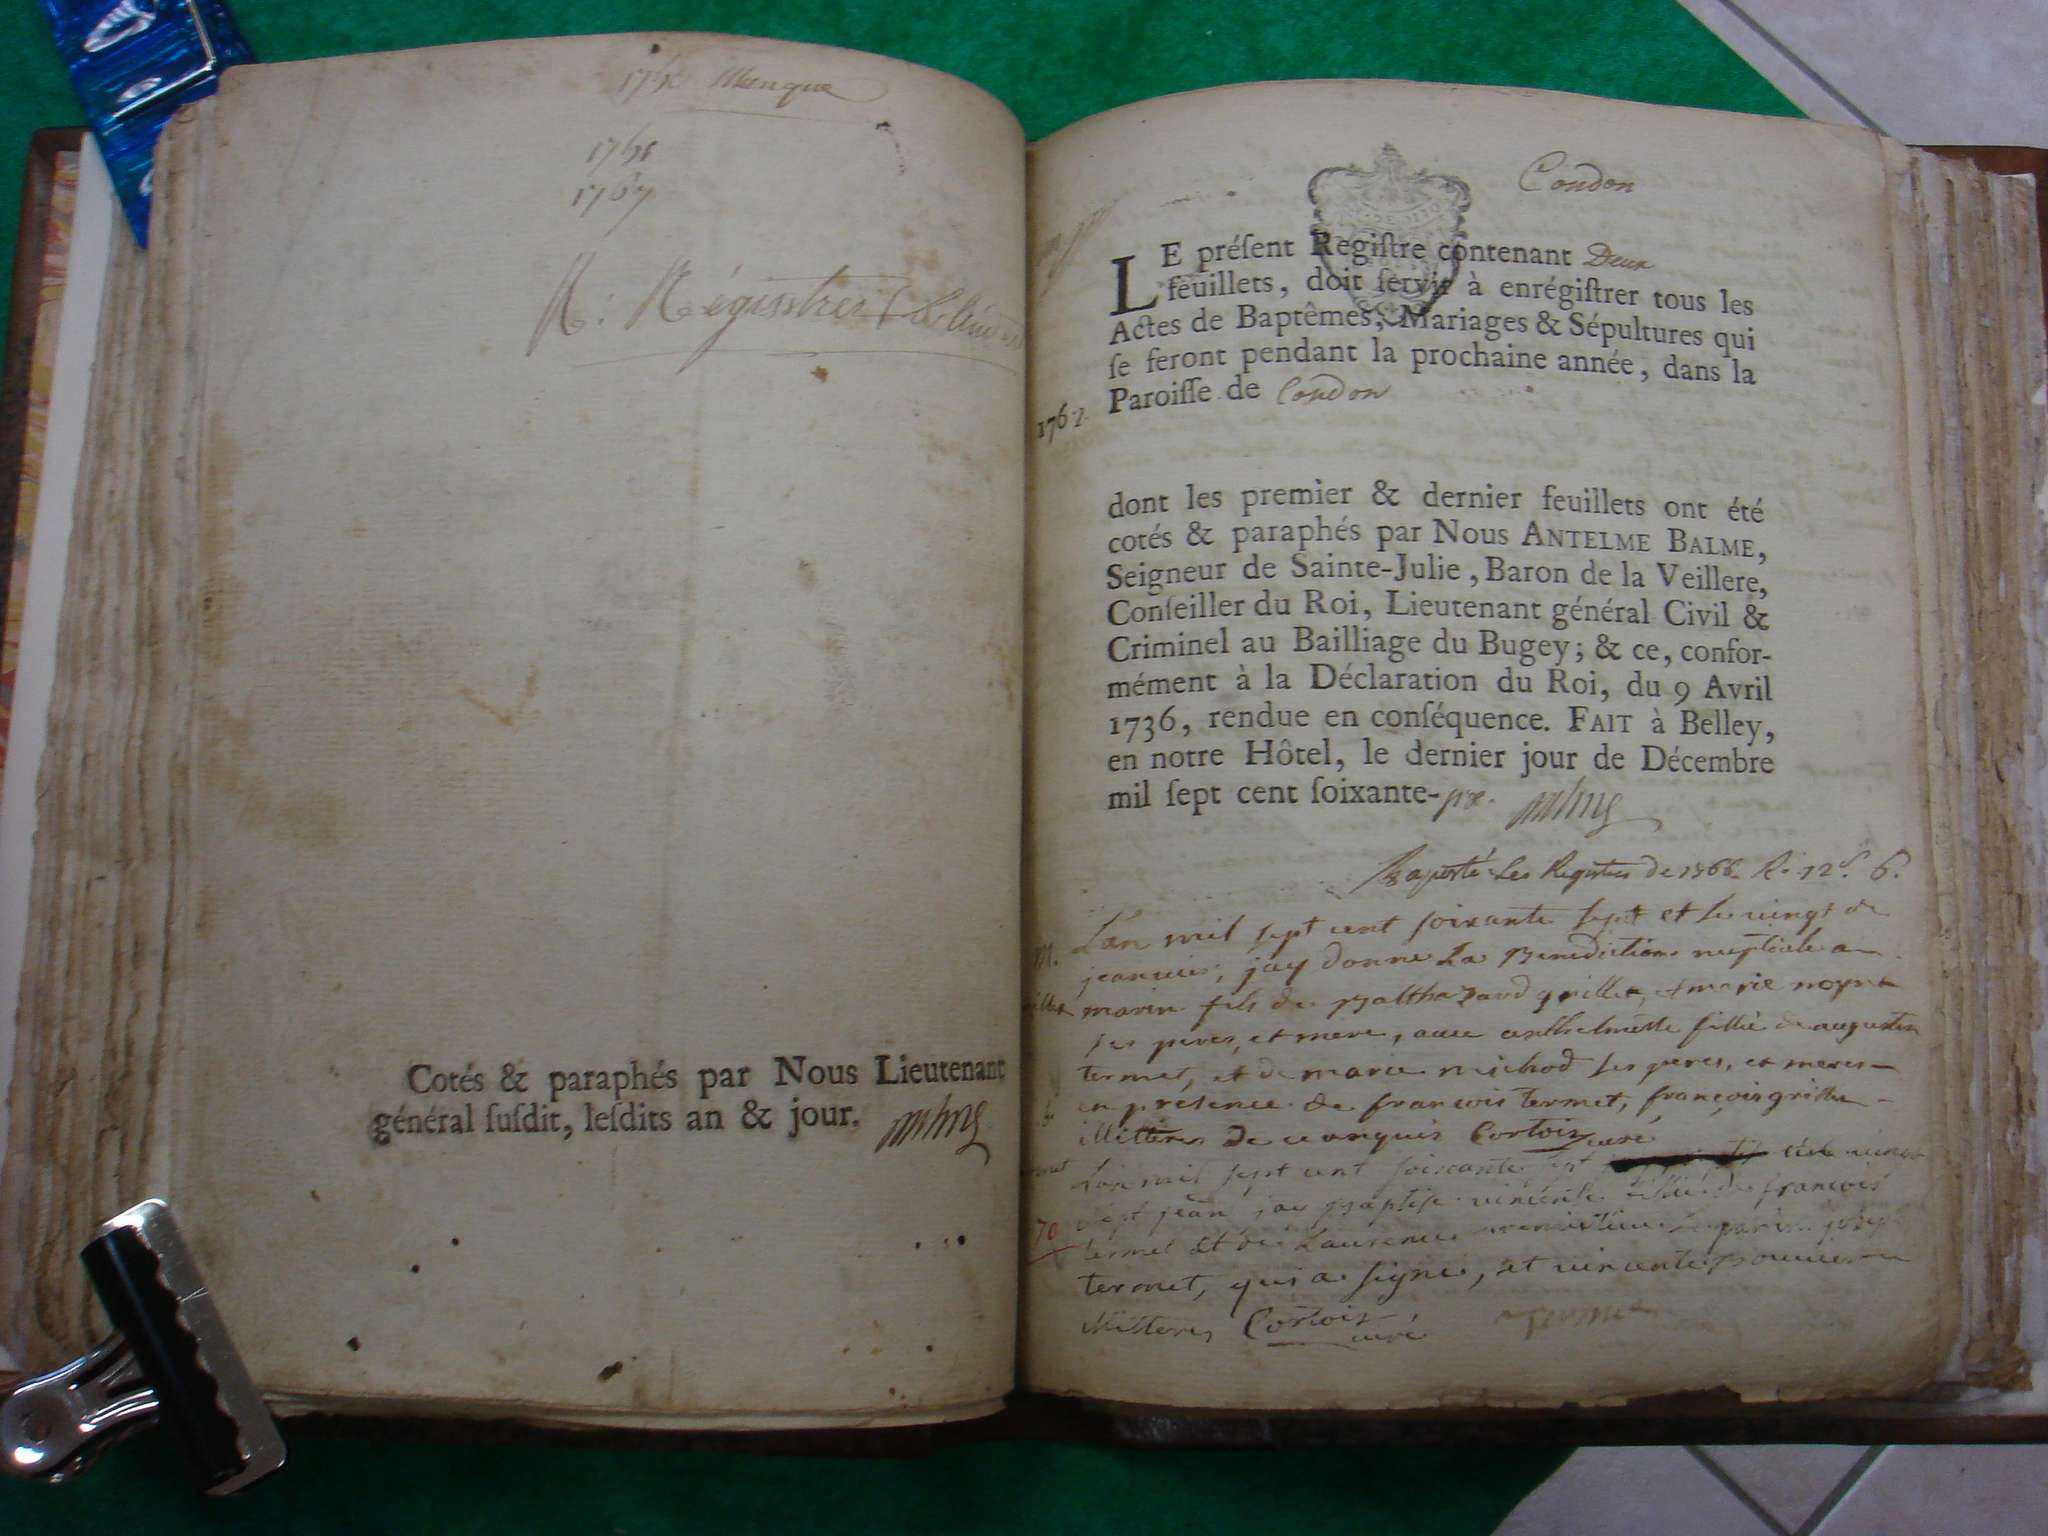 Manque
1767
R: Régistrer
Cotés & paraphés par Nous Lieutenant
général ſuſdit, leſdits an & jour.
Condon
LE préſent Regiſtre contenant Deux
feuillets, doit ſervir à enrégiſtrer tous les
Actes de Baptêmes, Mariages & Sépultures qui
ſe feront pendant la prochaine année, dans la
Paroiſſe de Condon
1767.
dont les premier & dernier feuillets ont été
cotés & paraphés par Nous ANTELME BALME,
Seigneur de Sainte-Julie, Baron de la Veillere,
Conſeiller du Roi, Lieutenant général Civil &
Criminel au Bailliage du Bugey; & ce, confor-
mément à la Déclaration du Roi, du 9 Avril
1736, rendue en conſéquence. FAIT à Belley,
en notre Hôtel, le dernier jour de Décembre
mil ſept cent ſoixante-
Raporté Les Registres de 1766 R. 12ſ. 6.
M. L'an mil sept cent soixante sept et le vingt de
jeanvier, jay donne La Benediction nuptiale a
marin fils de Balthazard grillet, et marie noyret
ses peres, et mere, avec anthelmette fillie de augustin
termet, et de marie michod ses peres, et meres
en presence de françois termet, françois grillet
illitteres de ce enquis Cortois curé
L'an mil sept cent soixante sept vingt
sept jean jay Baptise vincente fillie de francois
70 termet et de Laurence parin joseph
termet, qui a signe, et vincente
illitteres Cortois curé termet